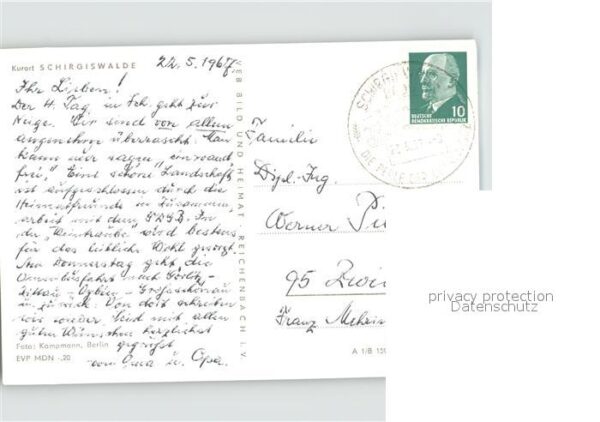 Kurort SCHIRGISWALDE
22.5.1967
Ihr Lieben!
Der 4. Tag in Sch. geht zur
Neige. Wir sind von allem
angenehm überrascht. Man
kann nur sagen "einwand
frei". Eine schöne Landschaft
ist aufgeschlossen durch die
Heimatfreunde in Zusammen
arbeit mit dem FDGB. In
der "Weintraube" wird bestens
für das leibliche Wohl gesorgt.
Am Donnerstag geht die
Omnibusfahrt nach Görlitz-
Zittau - Oybin - Großschönau
u. zurück. Von dort schreiben
wir wieder. Seid mit allen
guten Wünschen herzlichst
gegrüßt
von Oma u. Opa.
Foto: Kampmann, Berlin
EVP MDN -,20
VEB BILD UND HEIMAT · REICHENBACH I. V.
A 1/B 150
10
DEUTSCHE
DEMOKRATISCHE REPUBLIK
DIE PERLE DER
Familie
Dipl.-Ing.
Werner
95 Zwi
Franz Mehrin
privacy protection
Datenschutz